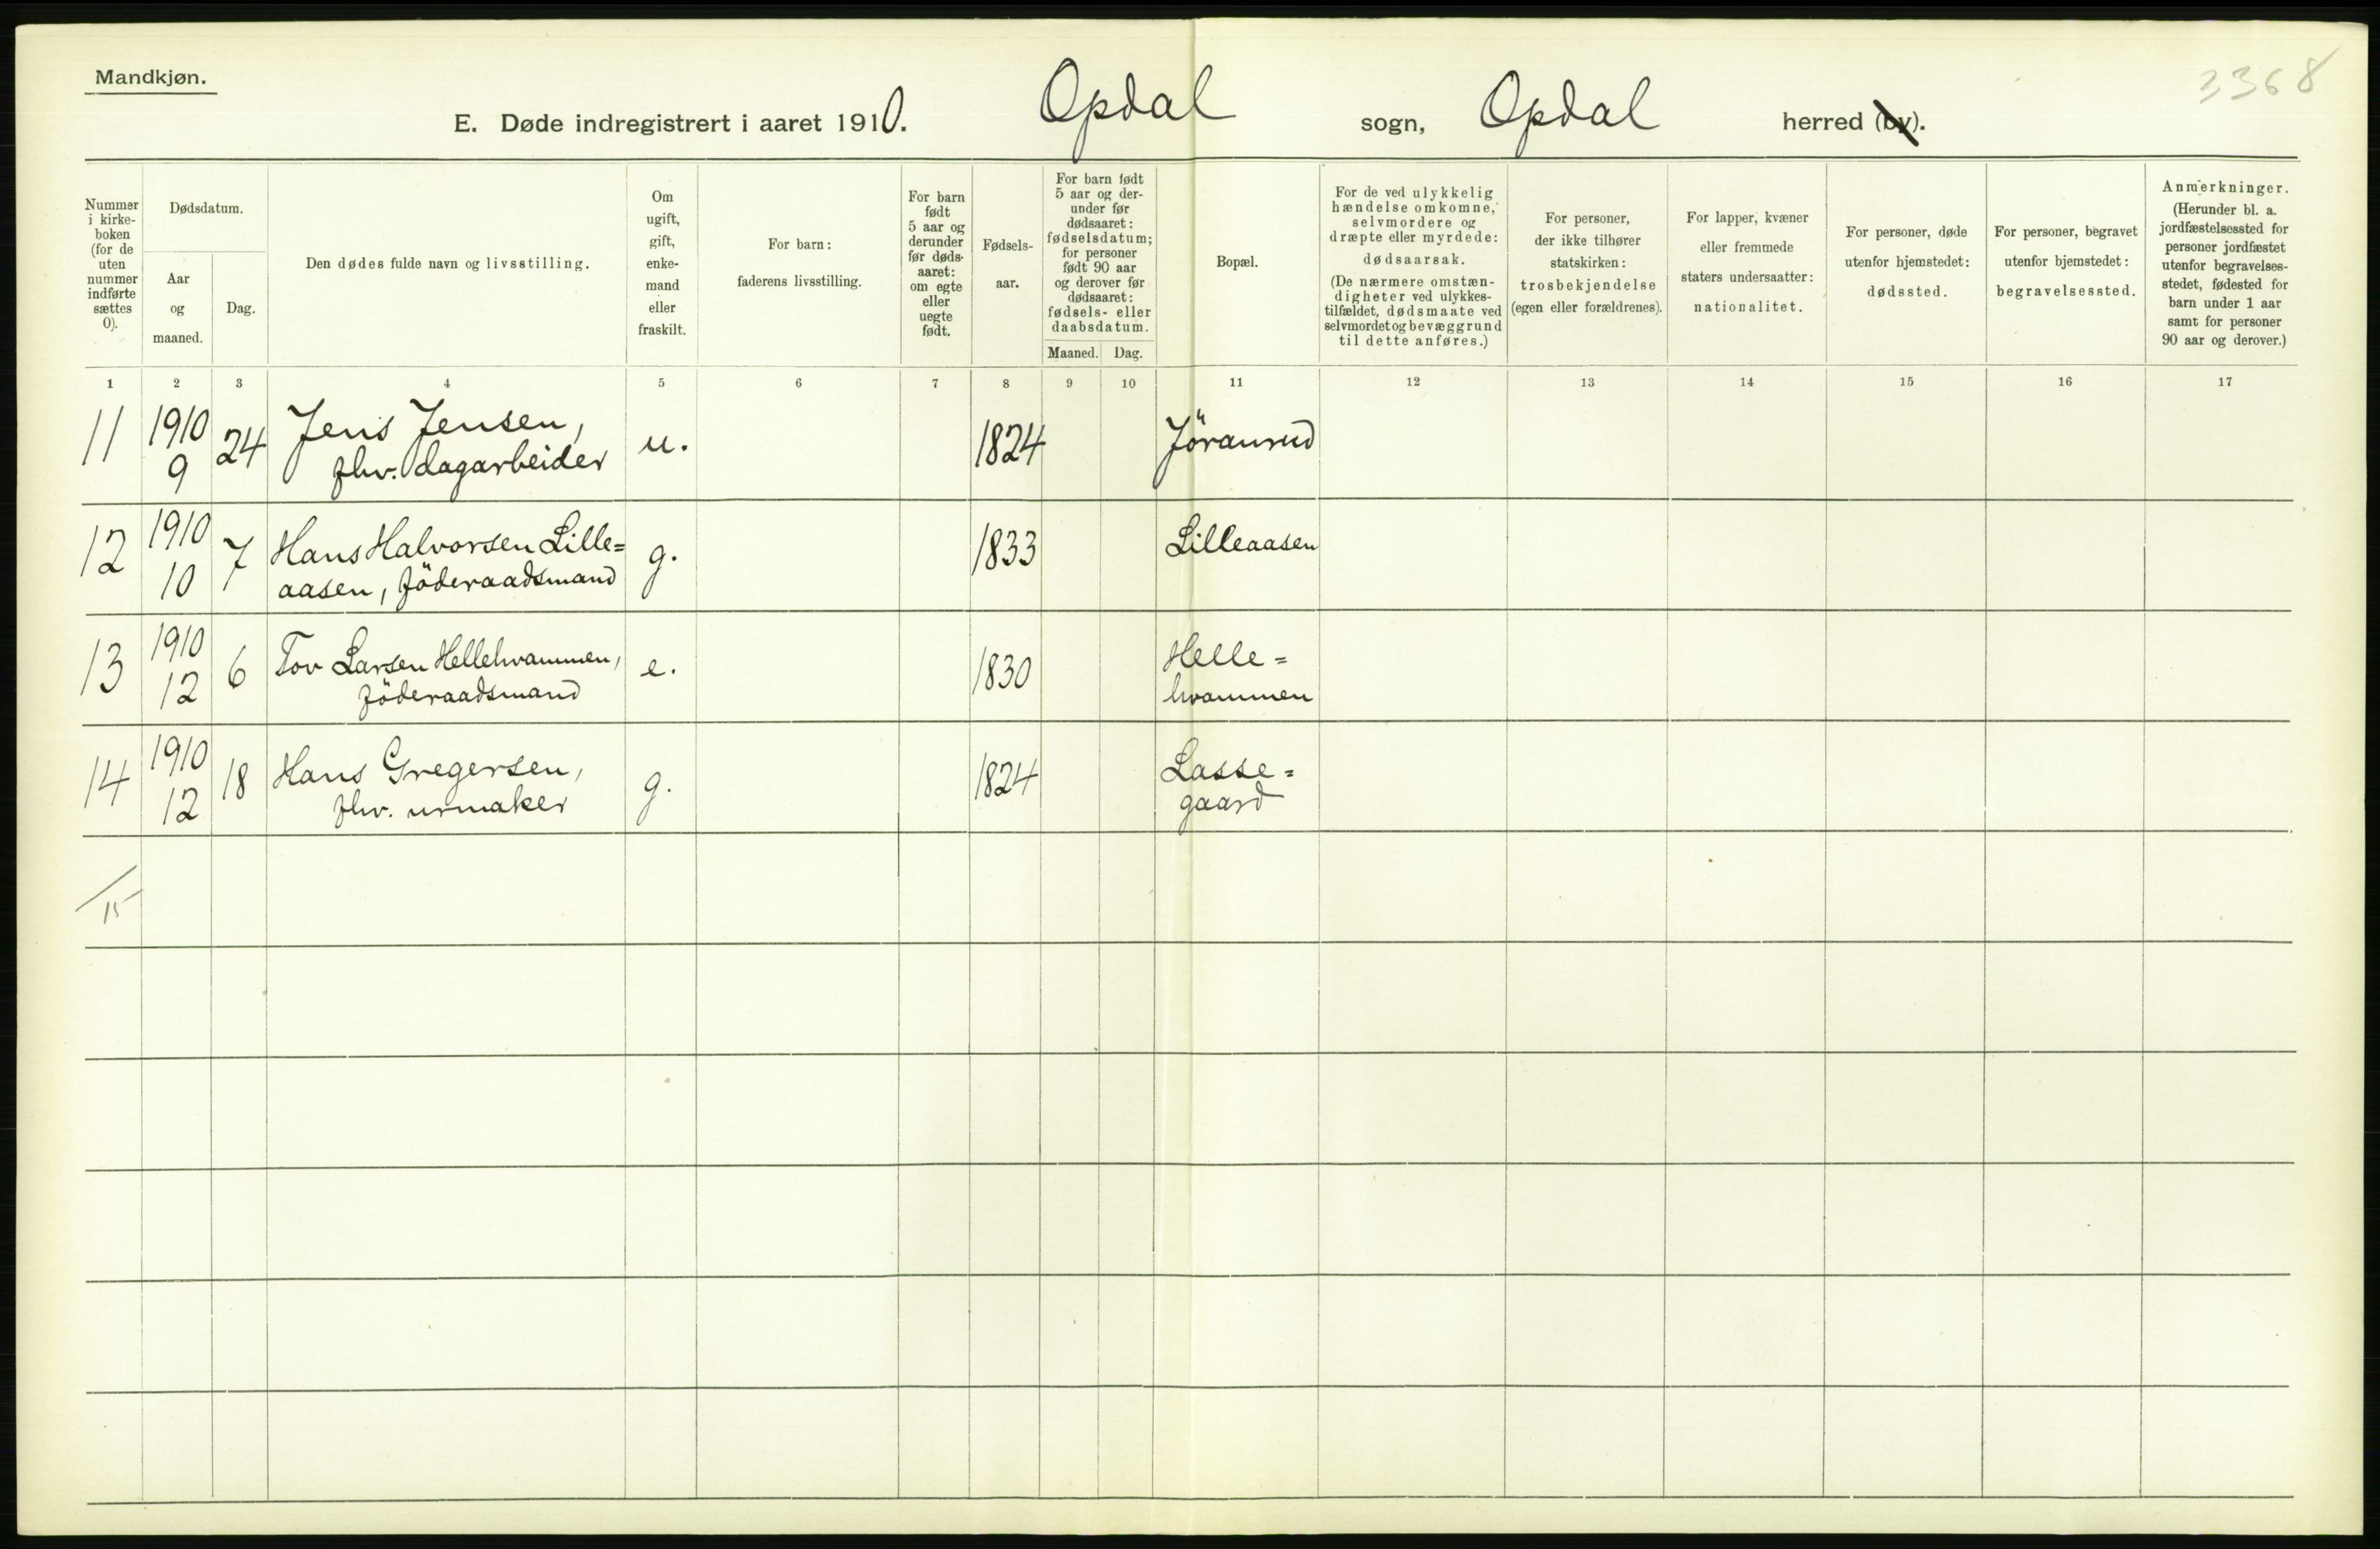 Mandkjøn.
3368
E. Døde indregistrert i aaret 1910. Opdal sogn, Opdal herred (by).
Nummer i kirke-boken (for de uten nummer indførte sættes 0).
Dødsdatum.
Aar og maaned.
Dag.
Den dødes fulde navn og livsstilling.
Om ugift, gift, enke-mand eller fraskilt.
For barn: faderens livsstilling.
For barn født 5 aar og derunder før døds-aaret: om egte eller uegte født.
Fødsels-aar.
For barn født 5 aar og der-under før dødsaaret: fødselsdatum; for personer født 90 aar og derover før dødsaaret: fødsels- eller daabsdatum.
Maaned. Dag.
Bopæl.
For de ved ulykkelig hændelse omkomne, selvmordere og dræpte eller myrdede: dødsaarsak.
(De nærmere omstæn-digheter ved ulykkes-tilfældet, dødsmaate ved selvmordet og bevæggrund til dette anføres.)
For personer, der ikke tilhører statskirken: trosbekjendelse (egen eller forældrenes).
For lapper, kvæner eller fremmede staters undersaatter: nationalitet.
For personer, døde utenfor hjemstedet: dødssted.
For personer, begravet utenfor hjemstedet: begravelsessted.
Anmerkninger.
(Herunder bl. a. jordfæstelsessted for personer jordfæstet utenfor begravelses-stedet, fødested for barn under 1 aar samt for personer 90 aar og derover.)
1 2 3 4 5 6 7 8 9 10 11 12 13 14 15 16 17
11 1910 9 24 Jens Jensen, u. 1824 Jöransrud
fhv. dagarbeider
12 1910 10 7 Hans Halvorsen Lille= g. 1833 Lilleaasen
aasen, föderaadsmand
13 1910 12 6 Tov Larsen Hellehvammen, e. 1830 Helle=
föderaadsmand hvammen
14 1910 12 18 Hans Gregersen, g. 1824 Lasse=
fhv. urmaker gaard
/15